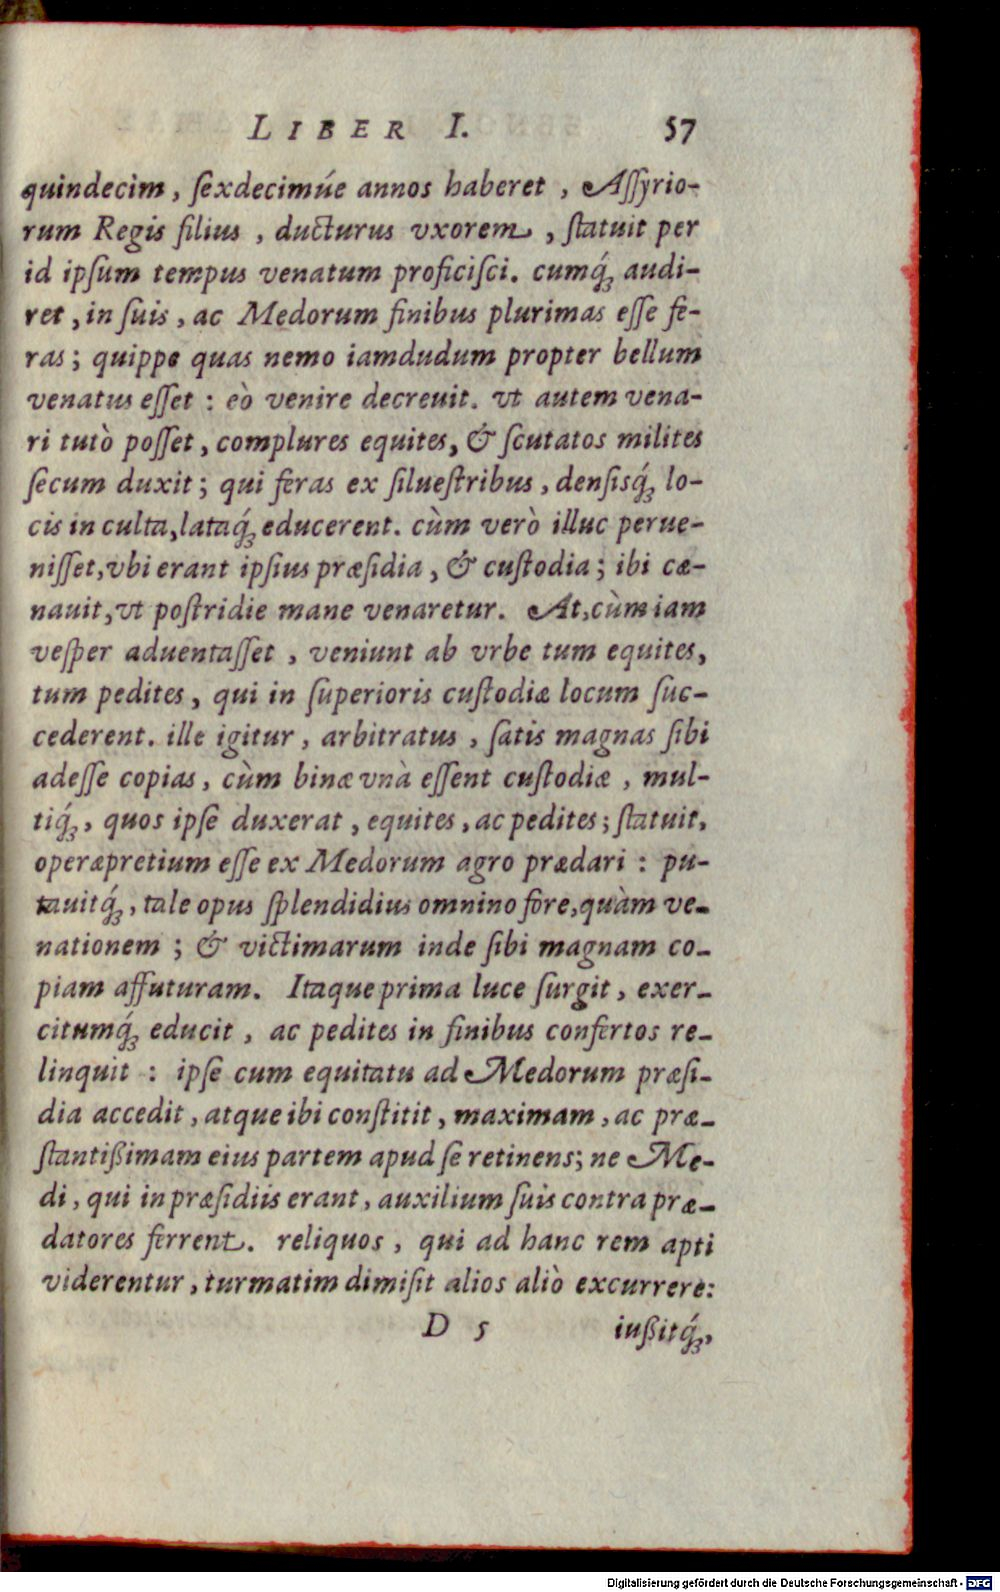 LIBER I. 57
quindecim, ſexdecimúe annos haberet, Aſſyrio-
rum Regis filius, ducturus vxorem, ſtatuit per
id ipſum tempus venatum proficiſci. cumq́ꝫ audi-
ret, in ſuis, ac Medorum finibus plurimas eſſe fe-
ras; quippe quas nemo iamdudum propter bellum
venatus eſſet: eò venire decreuit. vt autem vena-
ri tutò poſſet, complures equites, & ſcutatos milites
ſecum duxit; qui feras ex ſilueſtribus, denſisq́ꝫ lo-
cis in culta, lataq́ꝫ educerent. cùm verò illuc perue-
niſſet, vbi erant ipſius præſidia, & cuſtodia; ibi cæ-
nauit, vt poſtridie mane venaretur. At, cùm iam
veſper aduentaſſet, veniunt ab vrbe tum equites,
tum pedites, qui in ſuperioris cuſtodiæ locum ſuc-
cederent. ille igitur, arbitratus, ſatis magnas ſibi
adeſſe copias, cùm binæ vnà eſſent cuſtodiæ, mul-
tiq́ꝫ, quos ipſe duxerat, equites, ac pedites; ſtatuit,
operæpretium eſſe ex Medorum agro prædari: pu-
tauitq́ꝫ, tale opus ſplendidius omnino fore, quàm ve-
nationem; & victimarum inde ſibi magnam co-
piam affuturam. Itaque prima luce ſurgit, exer-
citumq́ꝫ educit, ac pedites in finibus confertos re-
linquit: ipſe cum equitatu ad Medorum præſi-
dia accedit, atque ibi conſtitit, maximam, ac præ-
ſtantißimam eius partem apud ſe retinens; ne Me-
di, qui in præſidiis erant, auxilium ſuis contra præ-
datores ferrent. reliquos, qui ad hanc rem apti
viderentur, turmatim dimiſit alios aliò excurrere:
D 5 iußitq́ꝫ,
Digitalisierung gefördert durch die Deutsche Forschungsgemeinschaft - DFG